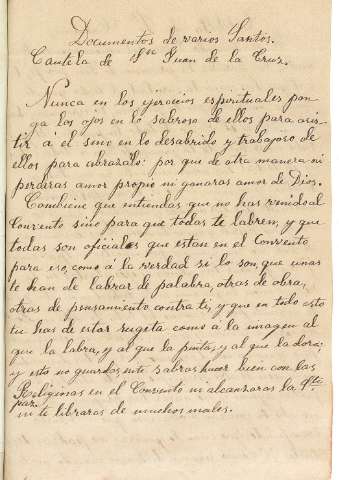 Documentos de varios Santos.
Cautela de Sn Juan de la Cruz.
Nunca en los ejercicios espirituales pon-
ga los ojos en lo sabroso de ellos para asis-
tir a el sino en lo desabrido y trabajoso de
ellos para abrazalo: por que de otra manera ni
perderas amor propio ni ganaras amor de Dios.
Combiene que entiendas que no has venido al
Convento sino para que todas te labren, y que
todas son oficiales que estan en el Convento
para eso, como á la verdad si lo son, que unas
te han de labrar de palabra, otras de obra,
otras de pensamiento contra ti, y que en todo esto
tu has de estar sugeta como á la imagen al
que la labra, y al que la pinta, y al que la dora;
y esto no guardas, ni te sabras hacer bien con las
Religiosas en el Convento ni alcanzaras la Sta
paz.
ni te libraras de muchos males.